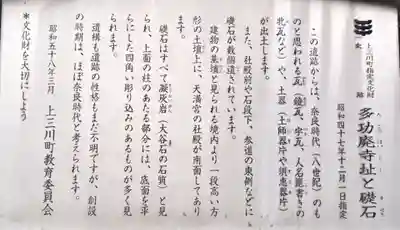 上三川町指定文化財
史跡 多功廃寺址と礎石
昭和四十七年十二月一日指定
この遺跡からは、奈良時代(八世紀)のも
のと思われる瓦(鐙瓦、宇瓦、人名篦書きの
牝瓦など)や、土器(土師器片や須恵器片)
が出土します。
また、社殿前や石段下、参道の東側などに
礎石が数個遺されています。
建物の基壇と見られる境内より一段高い方
形の土壇上に、天満宮の社殿が南面してあり
ます。
礎石はすべて凝灰岩(大谷石の石質)と見
られ、上面の柱のあたる部分には、底面を平
らにした四角い彫り込みのあるものが多く見
られます。
遺構も遺跡の性格もまだ不明ですが、創設
の時期は、ほぼ奈良時代と考えられます。
昭和五十八年三月 上三川町教育委員会
*文化財を大切にしよう